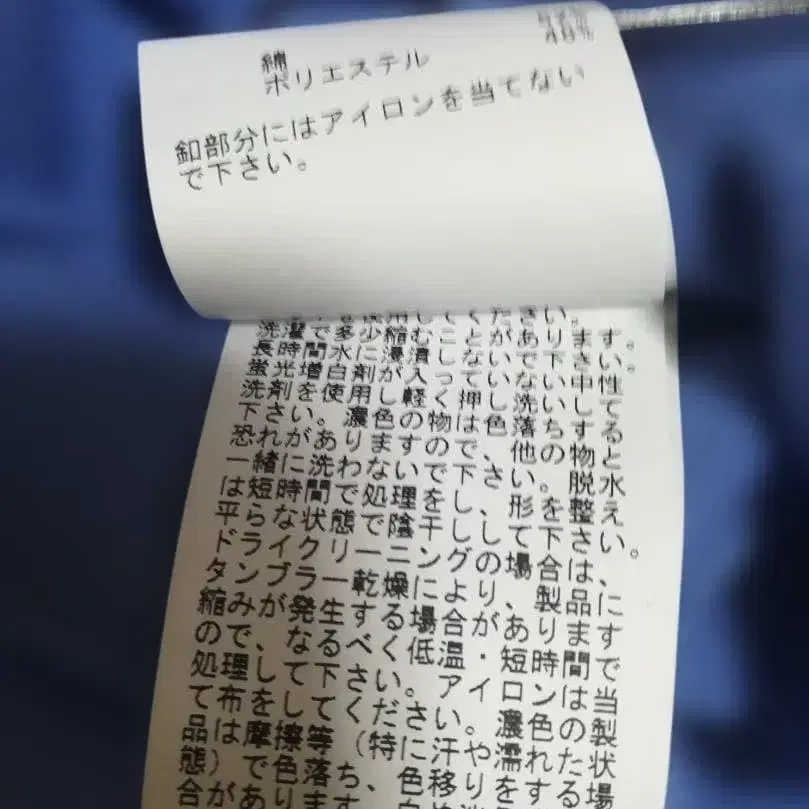 綿 52%
ポリエステル 48%
釦部分にはアイロンを当てない
で下さい。
使用してください。
洗濯で多少縮むことがあります。
長時間水に浸漬しないで下さい。
蛍光増白剤が入っていない中性
洗剤を使用し軽く押し洗いして
下さい。濃色の物は色落ちする
恐れがありますので、他の物と
一緒に洗わないで下さい。脱水
は短時間で処理をし、形を整え
平らな状態で陰干しして下さい。
ドライクリーニングの場合は、
タンブラー乾燥により、製品に
縮みが発生する場合があります
ので、なるべく低温・短時間で
処理して下さい。アイロンは当
て布をしてください。濃色の製
品は摩擦等（特に汗や濡れた状
態）で色落ち、色移りをする場
合があります。